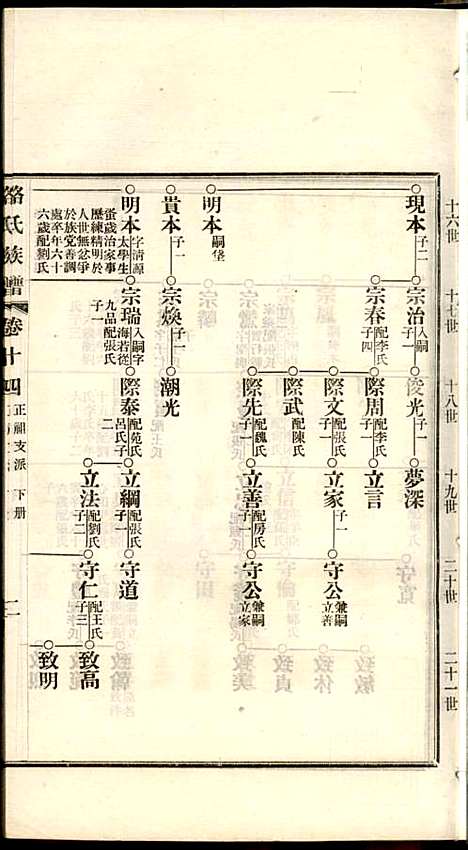 十六世
十七世
十八世
十九世
二十世
二十一世
現本 子二
宗治 入嗣 子一
俊光 子一
夢深
宗春 配李氏 子四
際周 配李氏 子一
立言
際文 配張氏 子一
立家 子一
守公 兼嗣 立善
際武 配陳氏
際先 配魏氏 子一
立善 配房氏 子一
守公 兼嗣 立家
明本 嗣垈
貴本 子一
宗煥 子一
潮光
明本 字清源 太學生 蚤歲治家事 歷練精明於 人世無忿爭 於族党善調 處卒年六十 六歲配劉氏
宗瑞 入嗣字 海若從 九品配張氏 子一
際泰 配苑氏 呂氏子 二
立綱 配張氏 子一
守道
立法 配劉氏 子二
守仁 配王氏 子三
致高
致明
氏族譜
卷十四
正嗣支派
下册